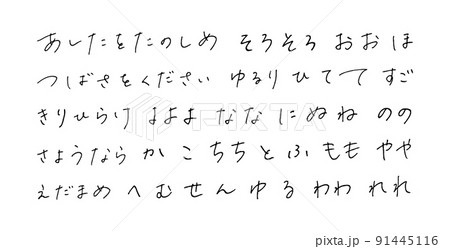 あしたをたのしめ そろそろ おお ほ
つばさをください ゆるり ひ て て すご
きりひらけ はよよ なな に ぬ ね のの
さようなら か こ ちち と ふ もも やや
えだまめ へ む せ ん ゆ る わわ れれ
PIXTA
pixta.jp - 91445116